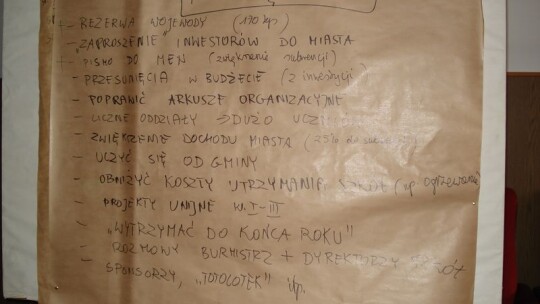 - REZERWA WOJEWODY (190 kp)
- "ZAPROSZENIE" INWESTORÓW DO MIASTA
- PISMO DO MEN (zwiększenie subwencji)
- PRZESUNIĘCIA W BUDŻECIE (z inwestycji)
- POPRAWIĆ ARKUSZE ORGANIZACYJNE
- LICZNE ODDZIAŁY → DUŻO
- ZWIĘKSZENIE DOCHODU MIASTA (25% do
- UCZYĆ SIĘ OD GMINY
- OBNIŻYĆ KOSZTY UTRZYMANIE SZKÓŁ (np ogrzewanie
- PROJEKTY UNIJNE W. I-III
- „WYTRZYMAĆ DO KOŃCA ROKU"
- ROZMOWY BURMISTRZ + DYREKTORZY SZKÓŁ
- SPONSORZY, „TOTOLOTEK" itp.